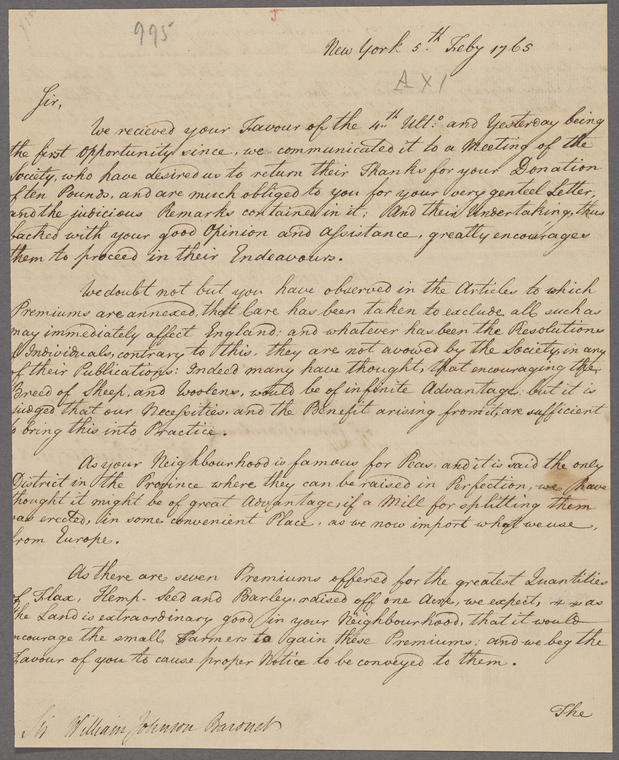 995
New York 5.th Feby 1765
A X 1
Sir,
We recieved your Favour of the 4.th Ult.o and Yesterday being
the first Opportunity since, we communicated it to a Meeting of the
Society, who have desired us to return their Thanks for your Donation
of ten Pounds, and are much obliged to you for your very genteel Letter,
and the judicious Remarks contained in it; And their Undertaking, thus
backed with your good Opinion and Assistance, greatly encourages
them to proceed in their Endeavours.
We doubt not but you have observed in the Articles to which
Premiums are annexed, that Care has been taken to exclude all such as
may immediately affect England; and whatever has been the Resolutions
of Individuals, contrary to this, they are not avowed by the Society, in any
of their Publications: Indeed many have thought, that encouraging the
Breed of Sheep, and Woolens, would be of infinite Advantage, but it is
judged that our Necessities, and the Benefit arising from it, are sufficient
to bring this into Practice.
As your Neighbourhood is famous for Peas, and it is said the only
District in the Province where they can be raised in Perfection, we have
thought it might be of great Advantage, if a Mill for splitting them
was erected, in some convenient Place, as we now import what we use,
from Europe.
As there are seven Premiums offered for the greatest Quantities
of Flax, Hemp-Seed and Barley, raised off one Acre, we expect, as
the Land is extraordinary good in your Neighbourhood, that it would
encourage the small Farmers to gain these Premiums; and we beg the
Favour of you to cause proper Notice to be conveyed to them.
The
Sir William Johnson Baronet